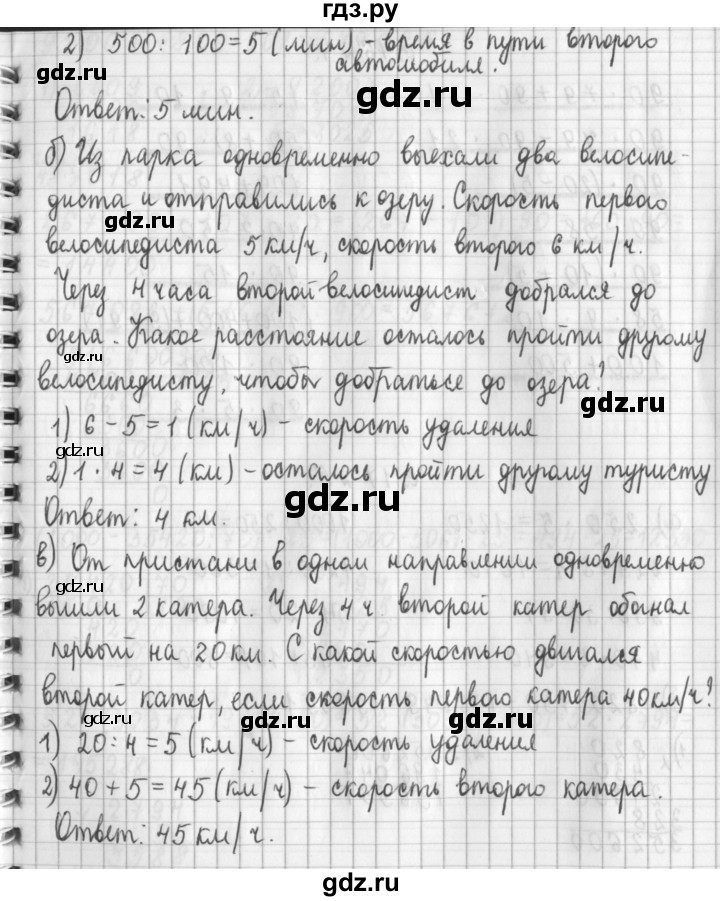 гдз.ру
2) 500 : 100 = 5 (мин) - время в пути второго
автомобиля.
gdz.ru
Ответ: 5 мин.
б) Из парка одновременно выехали два велосипе-
диста и отправились к озеру. Скорость первого
gdz.ru
gdz.ru
велосипедиста 5 км/ч, скорость второго 6 км/ч.
Через 4 часа второй велосипедист добрался до
озера. Какое расстояние осталось пройти другому
gdz.ru
велосипедисту, чтобы добраться до озера?
gdz.ru
1) 6 - 5 = 1 (км/ч) - скорость удаления
2) 1 · 4 = 4 (км) - осталось пройти другому туристу
gdz.ru
Ответ: 4 км.
в) От пристани в одном направлении одновременно
gdz.ru
вышли 2 катера. Через 4 ч второй катер обогнал
первый на 20 км. С какой скоростью двигался
второй катер, если скорость первого катера 40 км/ч?
gdz.ru
gdz.ru
gdz.ru
1) 20 : 4 = 5 (км/ч) - скорость удаления
2) 40 + 5 = 45 (км/ч) - скорость второго катера.
Ответ: 45 км/ч.
gdz.ru